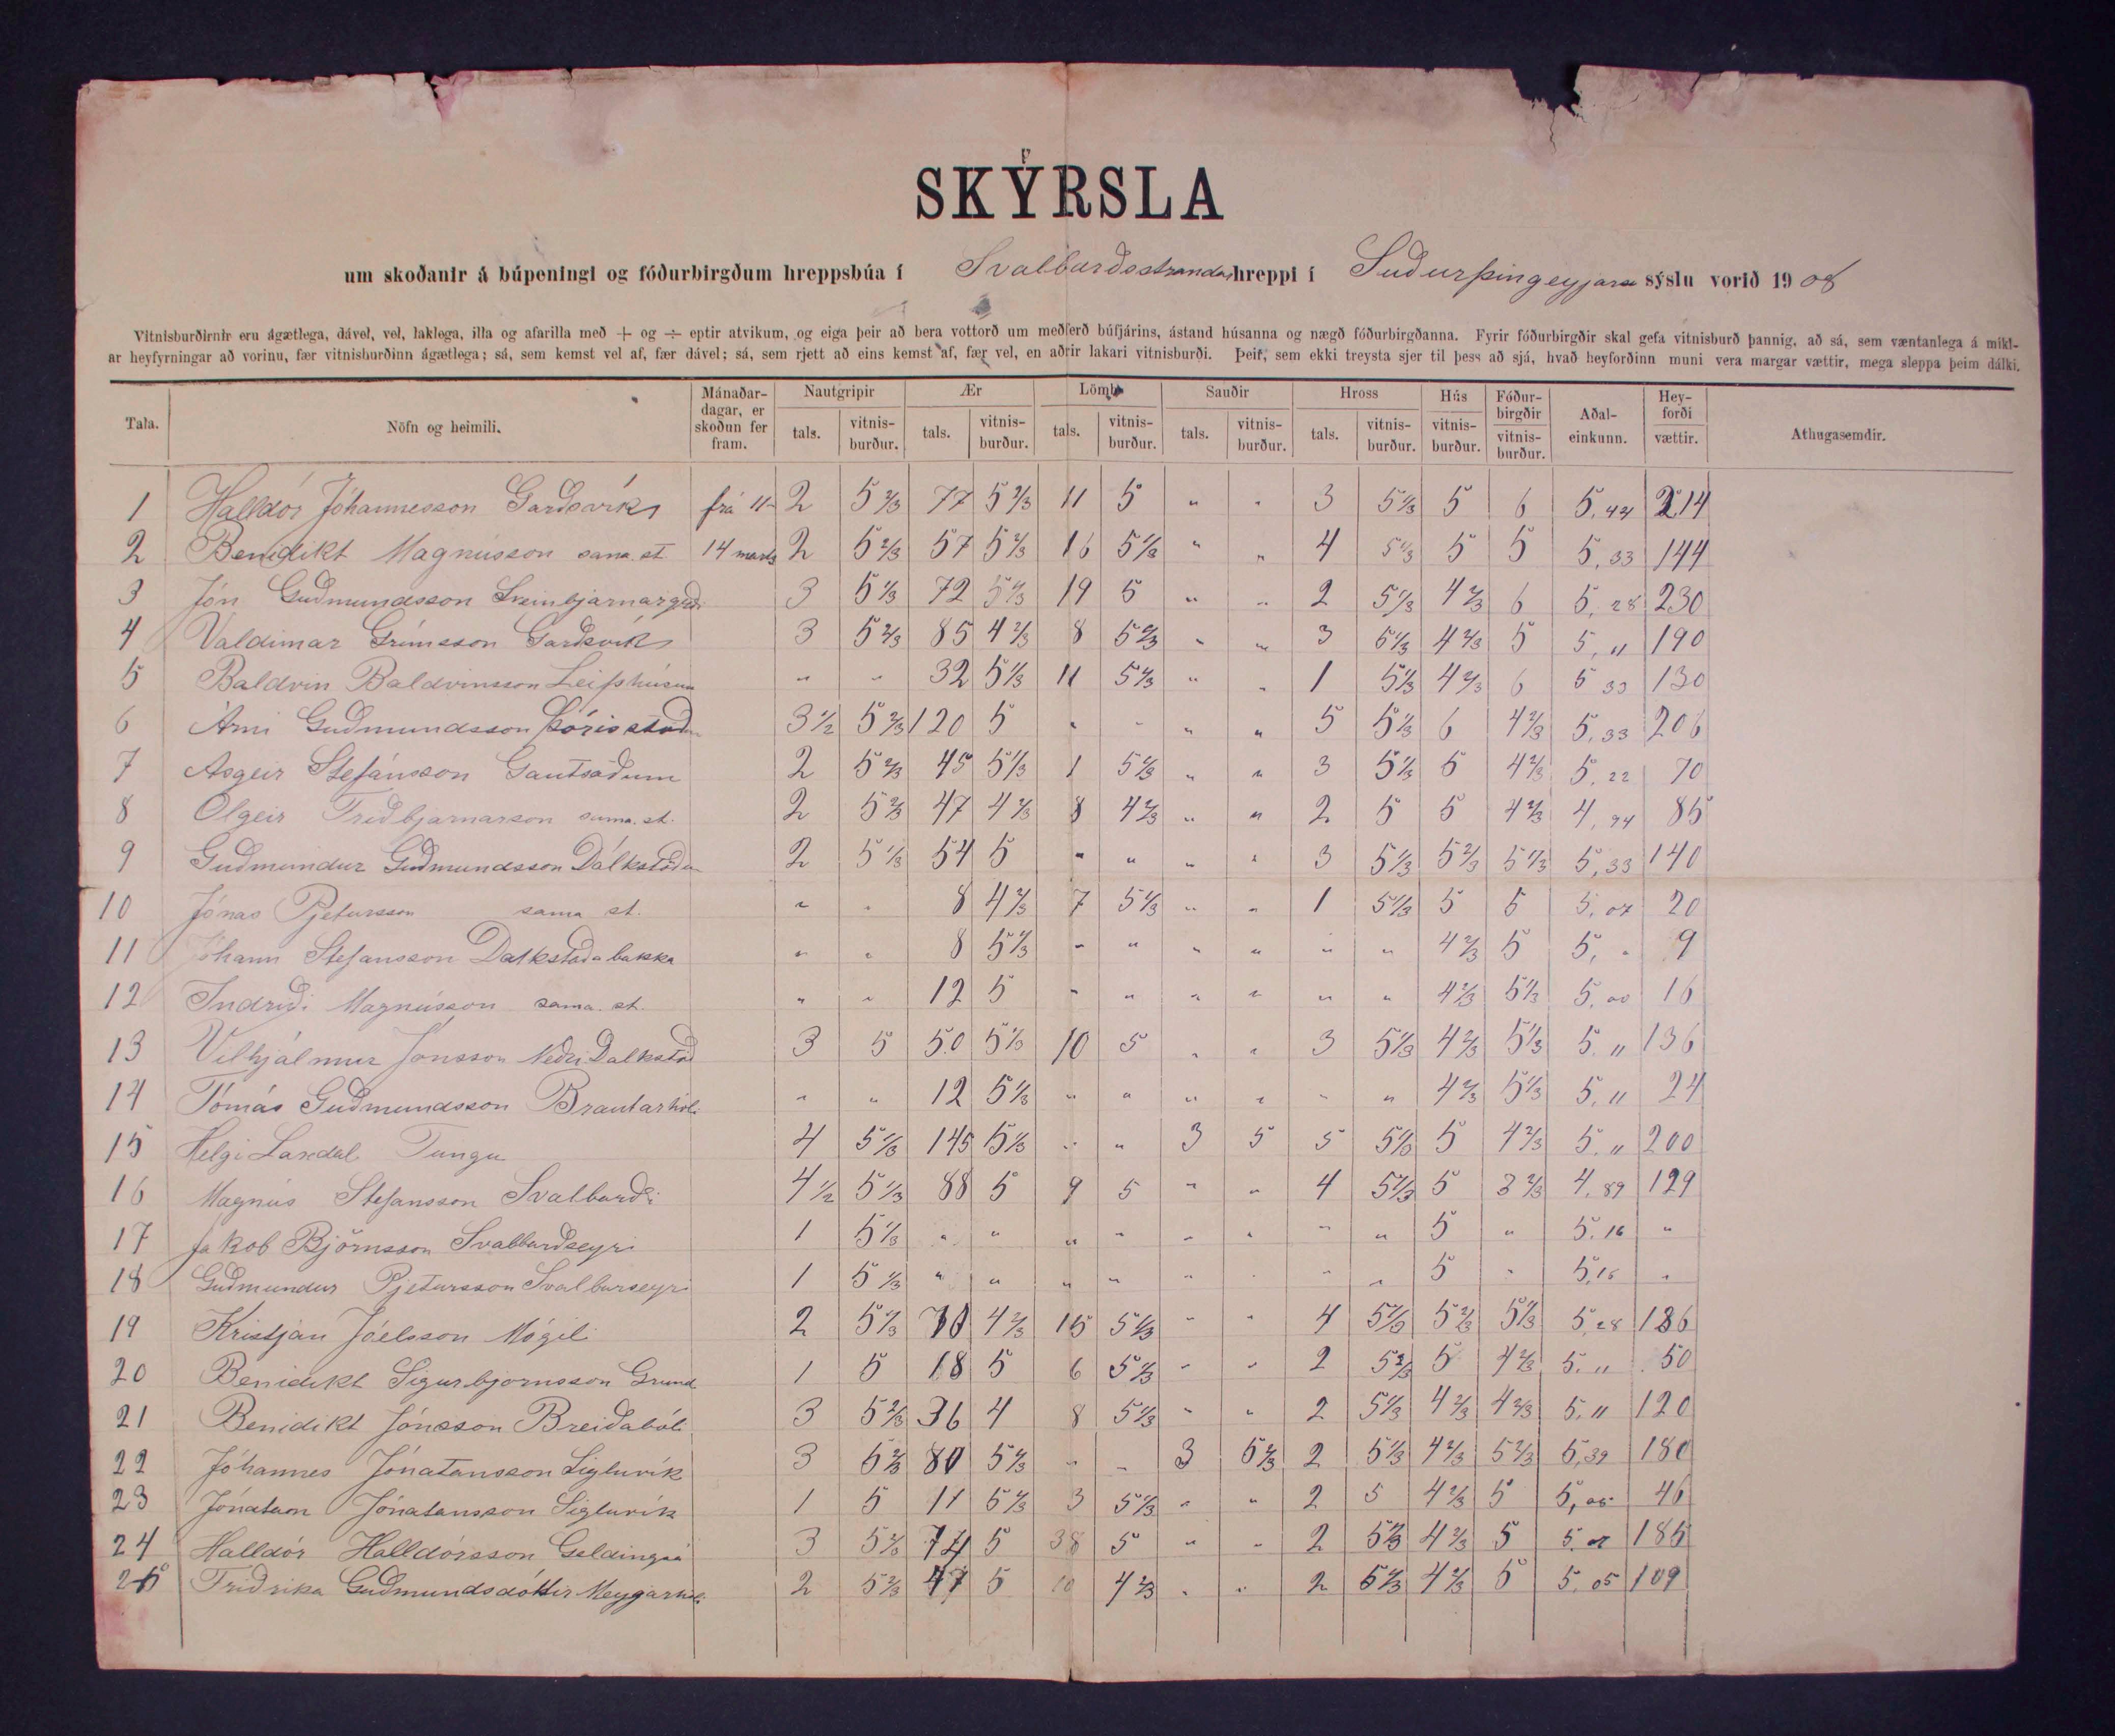 SKÝRSLA
um skoðanir á búpeningi og fóðurbirgðum hreppsbúa í Svalbarðsstrandar hreppi í Suðurþingeyjar sýslu vorið 1908
Vitnisburðirnir eru ágætlega, dável, vel, laklega, illa og afarilla með + og ÷ eptir atvikum, og eiga þeir að bera vottorð um meðferð búfjárins, ástand húsanna og nægð fóðurbirgðanna. Fyrir fóðurbirgðir skal gefa vitnisburð þannig, að sá, sem væntanlega á mikl-
ar heyfyrningar að vorinu, fær vitnisburðinn ágætlega; sá, sem kemst vel af, fær dável; sá, sem rjett að eins kemst af, fær vel, en aðrir lakari vitnisburði. Þeir, sem ekki treysta sjer til þess að sjá, hvað heyforðinn muni vera margar vættir, mega sleppa þeim dálki.
Tala. Nöfn og heimili. Mánaðar-dagar, er skoðun fer fram. Nautgripir tals. vitnis-burður. Ær tals. vitnis-burður. Lömb tals. vitnis-burður. Sauðir tals. vitnis-burður. Hross tals. vitnis-burður. Hús vitnis-burður. Fóður-birgðir vitnis-burður. Aðal-einkunn. Hey-forði vættir. Athugasemdir.
1 Halldór Jóhannesson Garðsvík frá 11- 2 5 2/3 77 5 2/3 11 5 " " 3 5 1/3 5 6 5,44 214
2 Benedikt Magnússon sama st. 14 marts 2 5 2/3 57 5 2/3 16 5 1/3 " " 4 5 1/3 5 5 5,33 144
3 Jón Guðmundsson Sveinbjarnargerði 3 5 1/3 72 5 1/3 19 5 " " 2 5 1/3 4 2/3 6 5,28 230
4 Valdimar Grímsson Garðsvík 3 5 2/3 85 4 2/3 8 5 2/3 " " 3 5 1/3 4 2/3 5 5," 190
5 Baldvin Baldvinsson Leifshúsum " " 32 5 1/3 11 5 1/3 " " 1 5 1/3 4 2/3 6 5 33 130
6 Árni Guðmundsson Þórisstöðum 3 1/2 5 2/3 120 5 " " " " 5 5 1/3 6 4 2/3 5,33 206
7 Asgeir Stefánsson Gautsöðum 2 5 2/3 45 5 1/3 1 5 2/3 " " 3 5 1/3 5 4 2/3 5,22 70
8 Olgeir Friðbjarnarson sama st. 2 5 2/3 47 4 2/3 8 4 2/3 " " 2 5 5 4 2/3 4,94 85
9 Guðmundur Guðmundsson Dálkstöðum 2 5 1/3 54 5 " " " " 3 5 1/3 5 2/3 5 1/3 5,33 140
10 Jónas Pjetursson sama st. " " 8 4 2/3 7 5 1/3 " " 1 5 1/3 5 5 5,07 20
11 Jóhann Stefansson Dalkstaðabakka " " 8 5 1/3 " " " " " " 4 2/3 5 5, " 9
12 Indriði Magnússon sama st. " " 12 5 " " " " " " 4 2/3 5 1/3 5,00 16
13 Vilhjálmur Jónsson Neðri Dalkstöð 3 5 50 5 1/3 10 5 " " 3 5 1/3 4 2/3 5 1/3 5. " 136
14 Tómás Guðmundsson Brautarhóli " " 12 5 1/3 " " " " " " 4 2/3 5 1/3 5. " 24
15 Helgi Laxdal Tungu 4 5 1/3 145 5 1/3 " " 3 5 5 5 1/3 5 4 2/3 5. " 200
16 Magnús Stefansson Svalbarði 4 1/2 5 1/3 88 5 9 5 " " 4 5 1/3 5 3 2/3 4,89 129
17 Jakob Björnsson Svalbarðseyri 1 5 1/3 " " " " " " " " 5 " 5.16 "
18 Guðmundur Pjetursson Svalburseyri 1 5 1/3 " " " " " " " " 5 " 5,16 "
19 Kristján Jóelsson Mógili 2 5 1/3 70 4 2/3 15 5 1/3 " " 4 5 1/3 5 2/3 5 1/3 5,28 186
20 Benidikt Sigurbjörnsson Grund 1 5 18 5 6 5 1/3 " " 2 5 2/3 5 4 2/3 5. " 50
21 Benidikt Jónsson Breiðabóli 3 5 2/3 36 4 8 5 1/3 " " 2 5 1/3 4 2/3 4 2/3 5. " 120
22 Jóhannes Jónatansson Sigluvík 3 5 2/3 80 5 1/3 " " 3 5 2/3 2 5 1/3 4 2/3 5 2/3 5,39 180
23 Jónatan Jónatansson Sigluvík 1 5 11 5 1/3 3 5 1/3 " " 2 5 4 2/3 5 5,05 46
24 Halldór Halldórsson Geldingsá 3 5 1/3 74 5 38 5 " " 2 5 1/3 4 2/3 5 5. 185
25 Friðrika Guðmundsdóttir Meygarhóli 2 5 2/3 47 5 10 4 2/3 " " 2 5 1/3 4 2/3 5 5,05 109